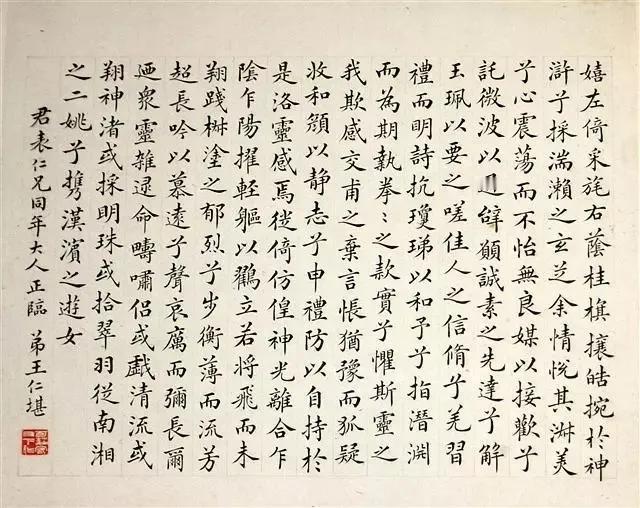 嬉左倚采旄右蔭桂旗攘皓捥於神
滸兮採湍瀨之玄芝余情悅其淑美
兮心震蕩而不怡無良媒以接歡兮
託微波以辭願誠素之先達兮解
玉珮以要之嗟佳人之信脩兮羌習
禮而明詩抗瓊珶以和予兮指潛淵
而為期執拳〻之款實兮懼斯靈之
我欺感交甫之棄言悵猶豫而狐疑
收和顏以静志兮申禮防以自持於
是洛靈感焉徙倚仿偟神光離合乍
陰乍陽擢輕軀以鸖立若將飛而未
翔踐椒塗之郁烈兮步衡薄而流芳
超長吟以慕遠兮聲哀厲而彌長爾
迺衆靈雜遝命疇嘯侶或戲清流或
翔神渚或採明珠或拾翠羽從南湘
之二姚兮攜漢濱之遊女
君表仁兄同年大人正臨 弟王仁堪